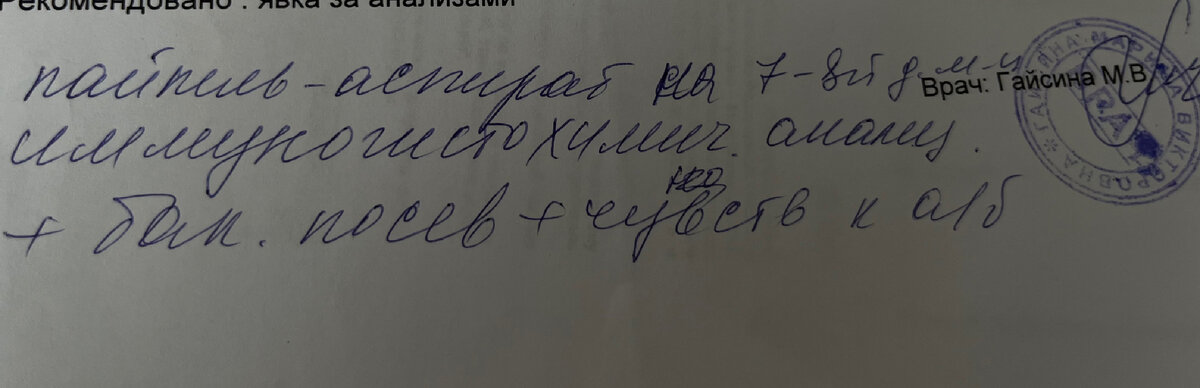 Рекомендовано : явка за анализами
пайпель-аспират на 7-8й д.м.ц
Врач: Гайсина М.В.
иммуногистохимич. анализ.
+ бак. посев + на чувств к а/б
ГАЙСИНА МАРИНА ВИКТОРОВНА